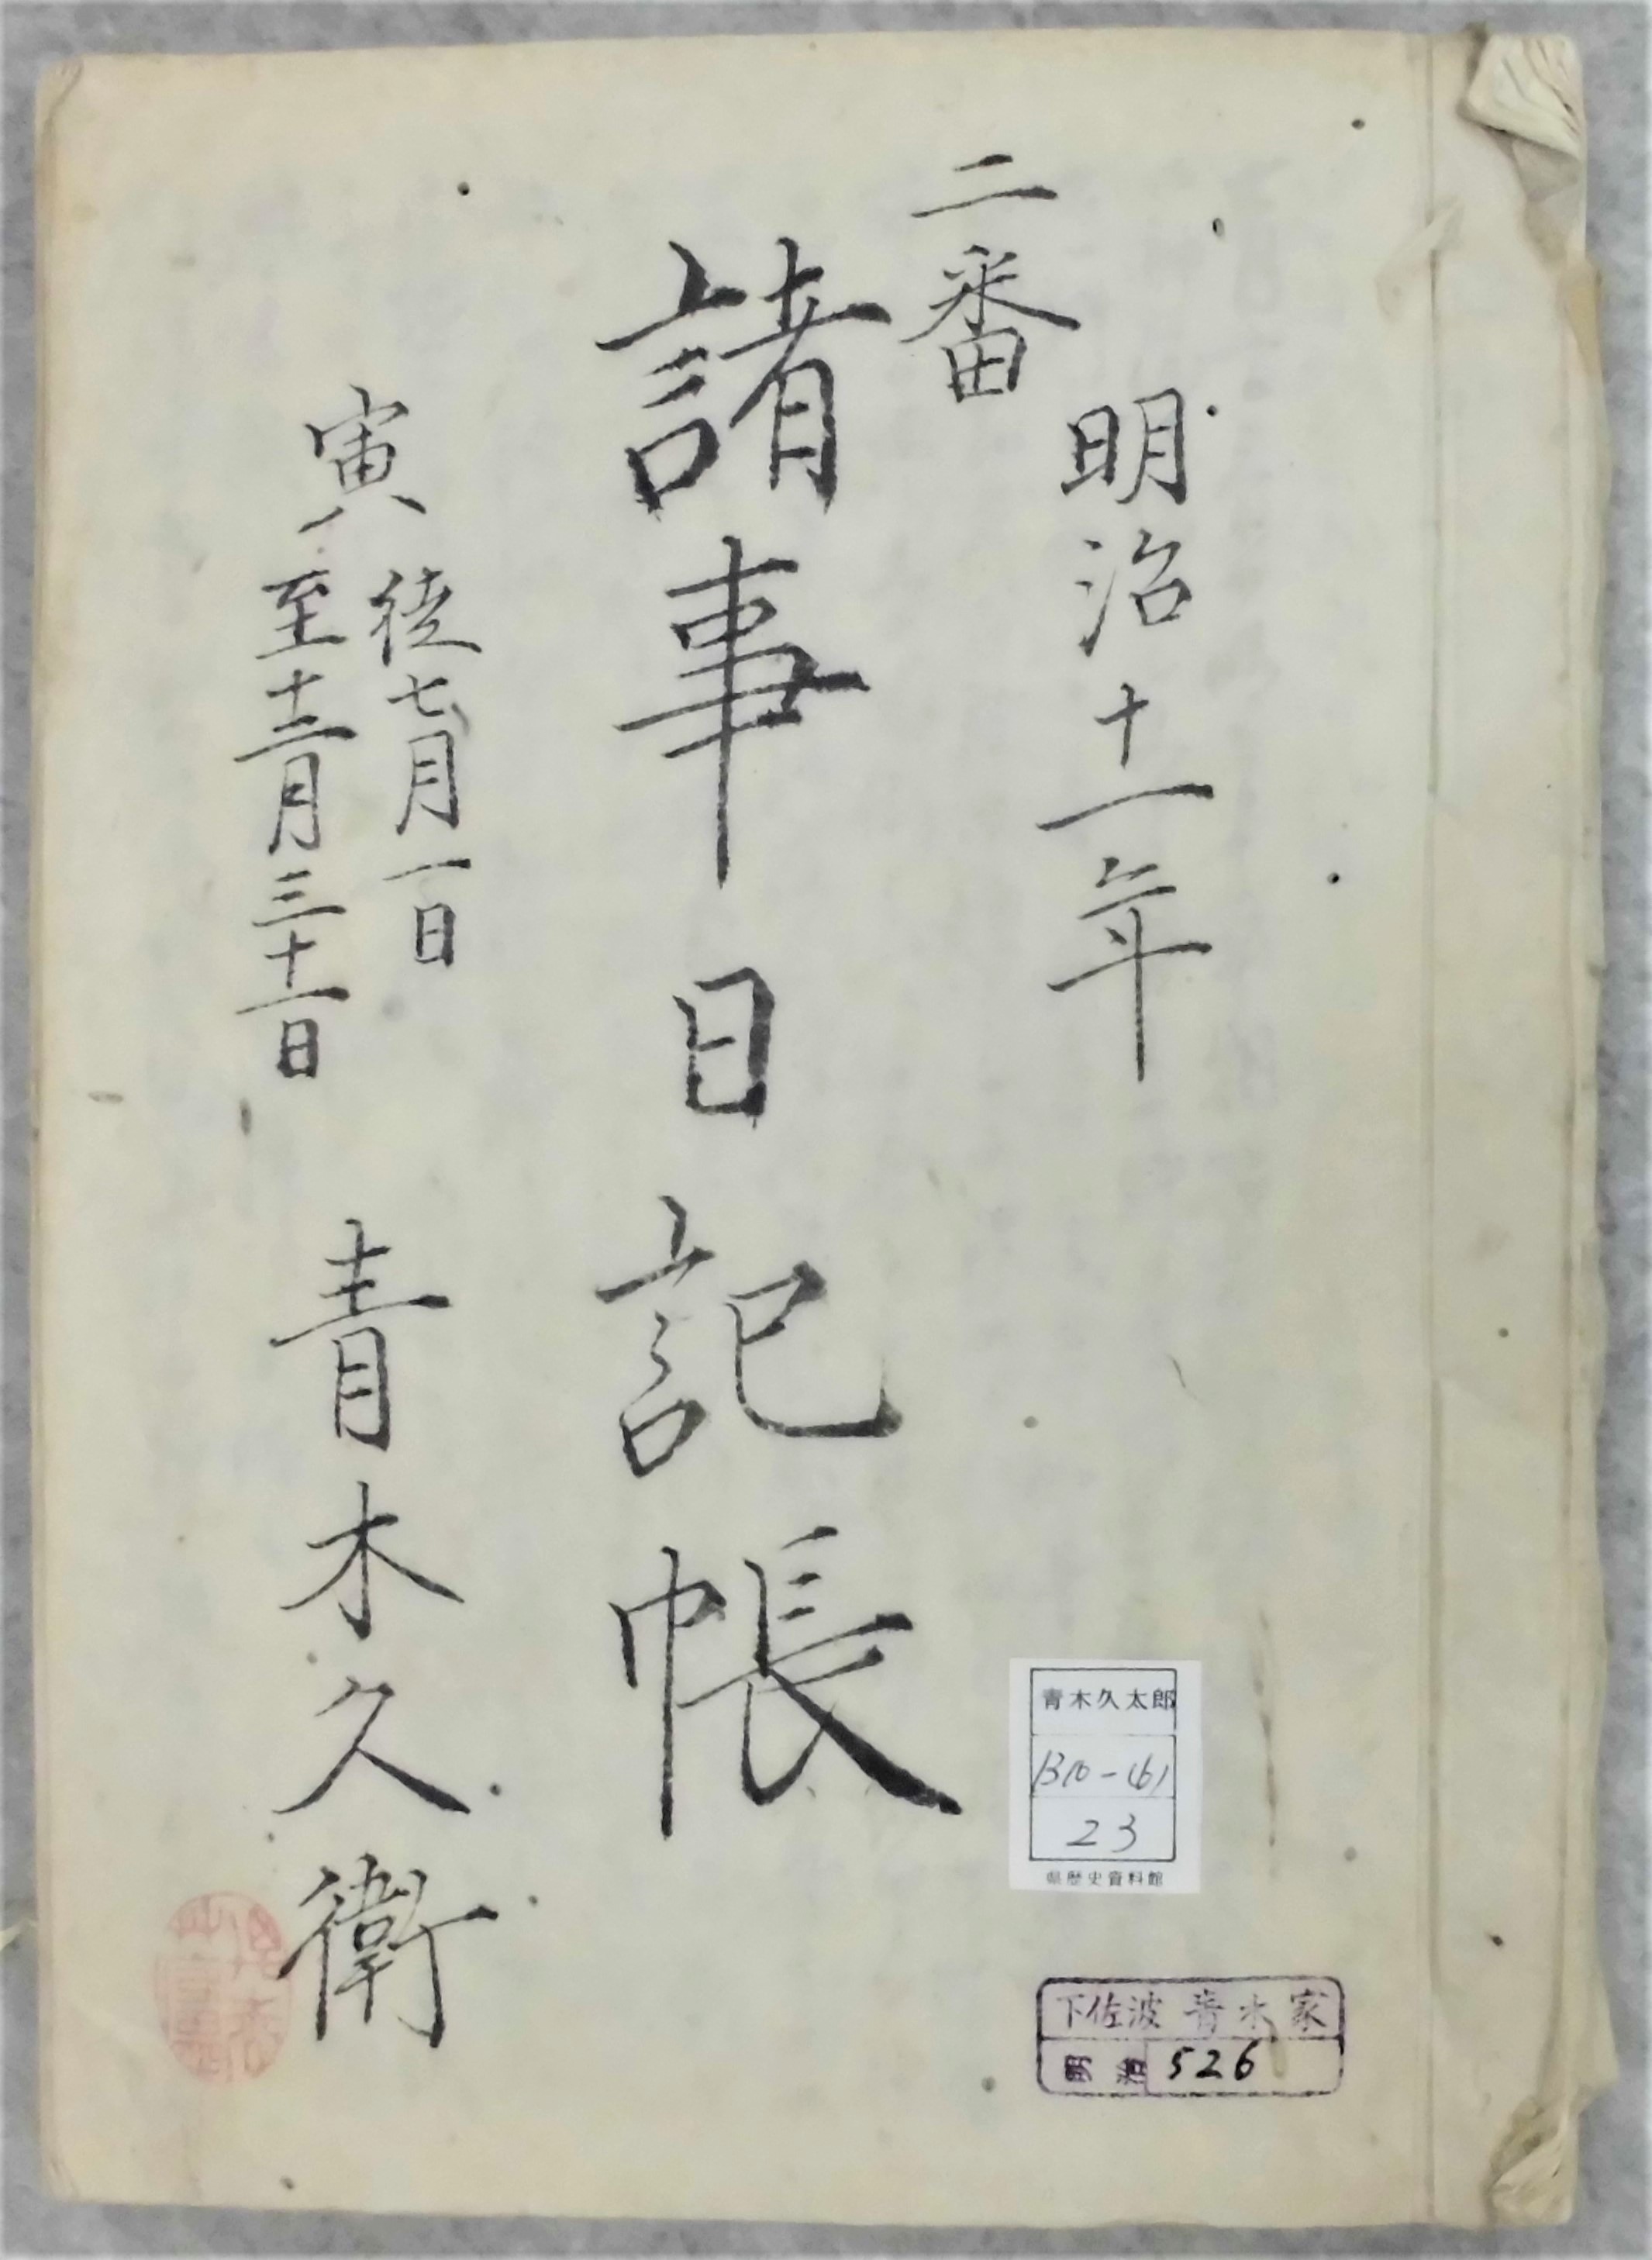 明治十一年
二番
諸事日記帳
寅
従七月一日
至十二月三十一日
青木久衛
青木久太郎
B10-(6)
23
県歴史資料館
下佐波 青木家
526